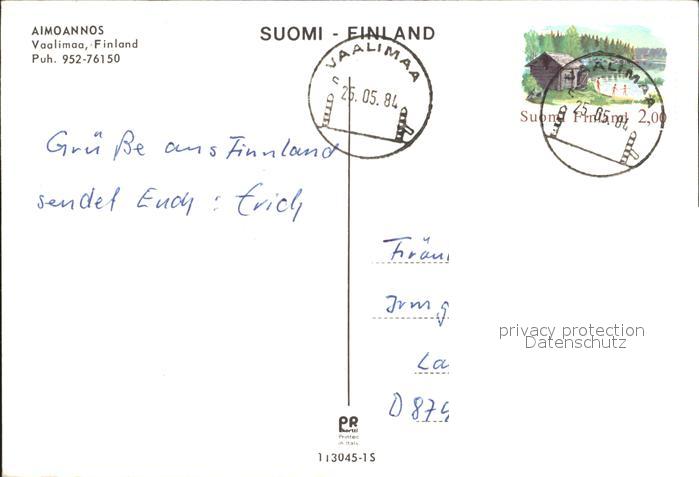 AIMOANNOS
Vaalimaa, Finland
Puh. 952-76150
SUOMI - FINLAND
VAALIMAA
25.05.84
VAALIMAA
25.05.84
Suomi Finland 2,00
Grüße aus Finnland
sendet Euch : Erich
Fräu
Irmg
La
D 874
privacy protection
Datenschutz
PR
Printed
in Italy
113045-1S